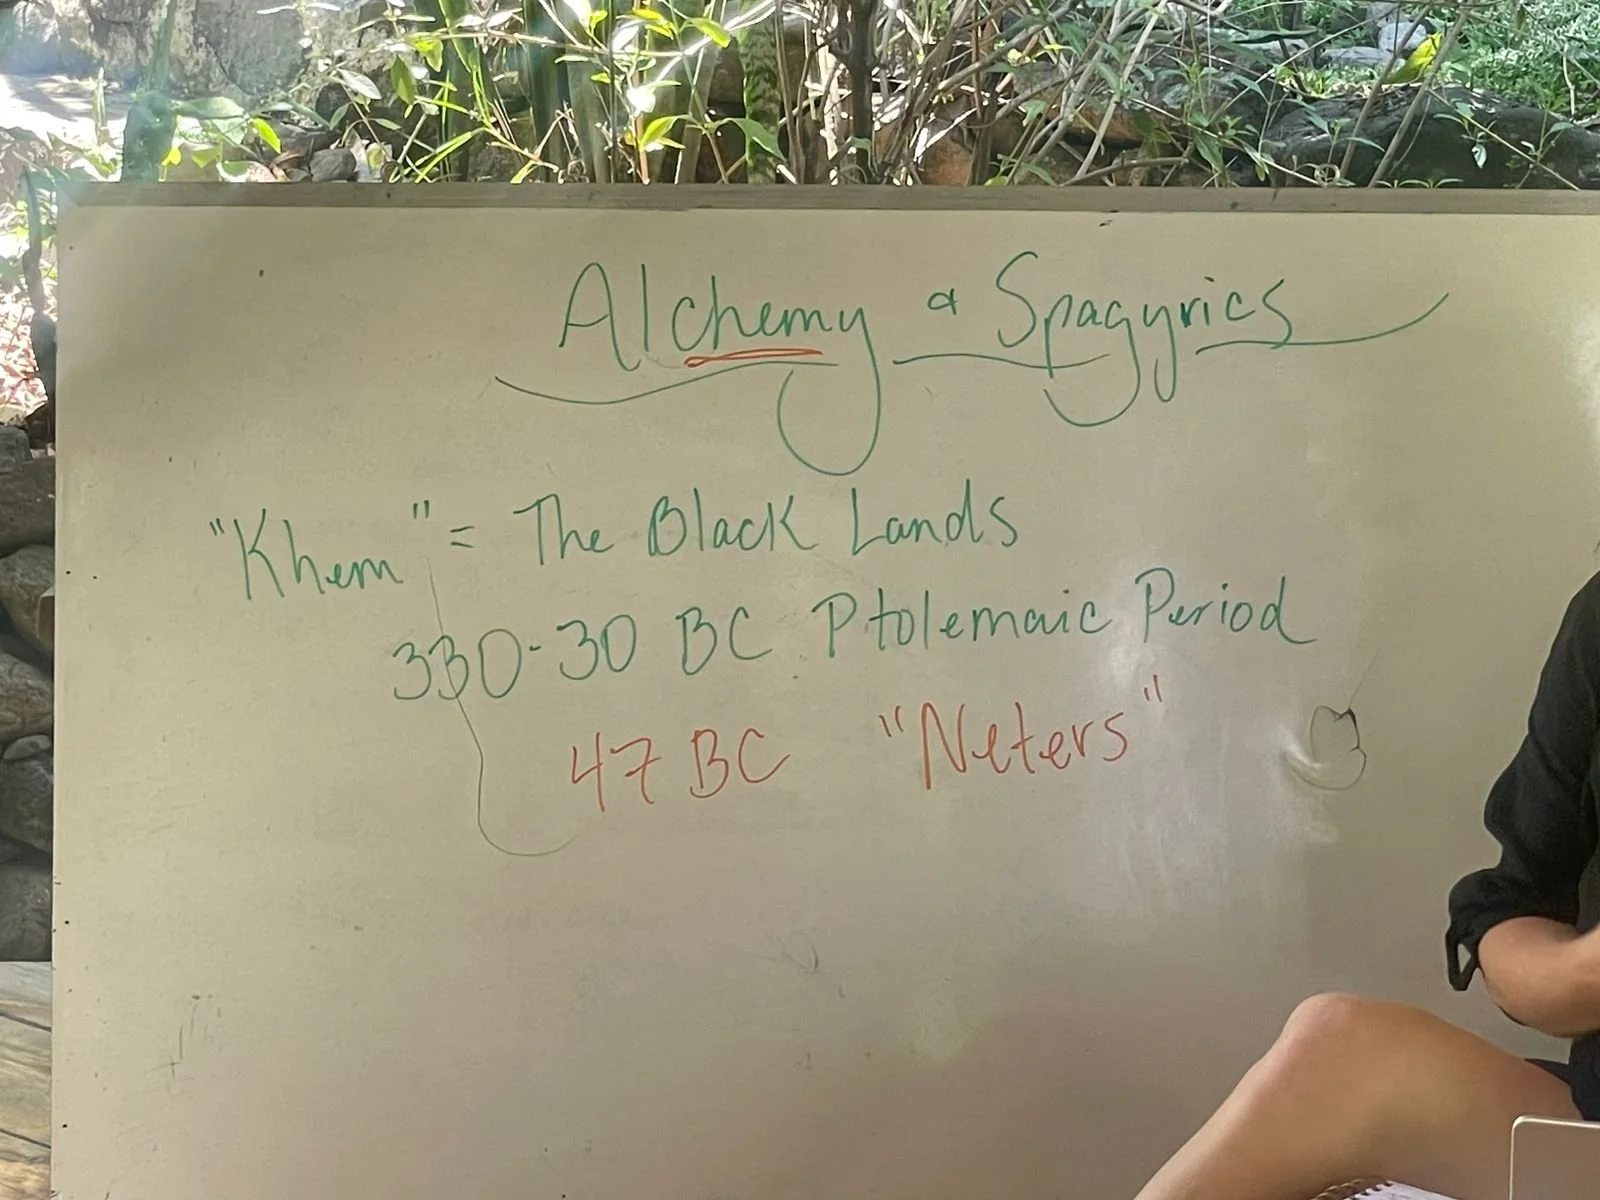 Alchemy & Spagyrics
"Khem" = The Black Lands
330-30 BC Ptolemaic Period
47 BC "Neters"